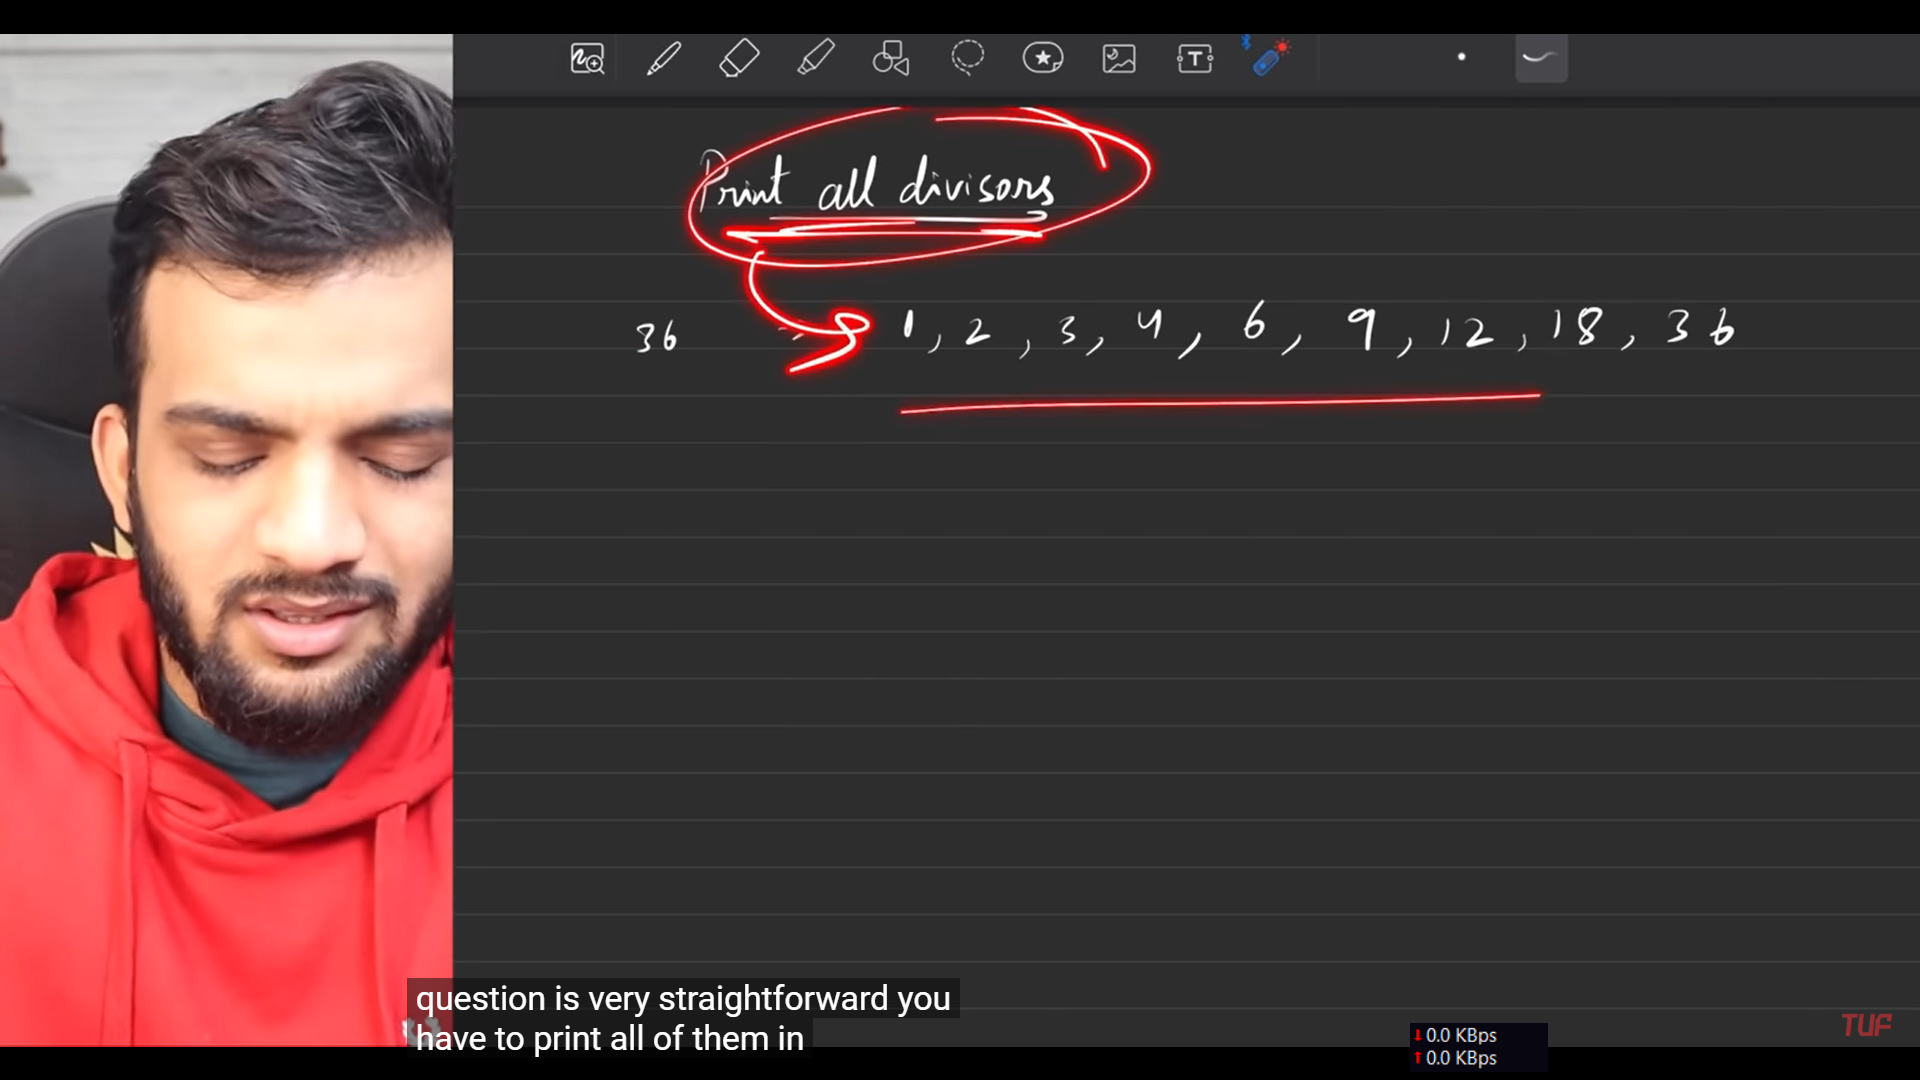 T
Print all divisors
36 1, 2, 3, 4, 6, 9, 12, 18, 36
question is very straightforward you
have to print all of them in
TUF
↓ 0.0 KBps
↑ 0.0 KBps